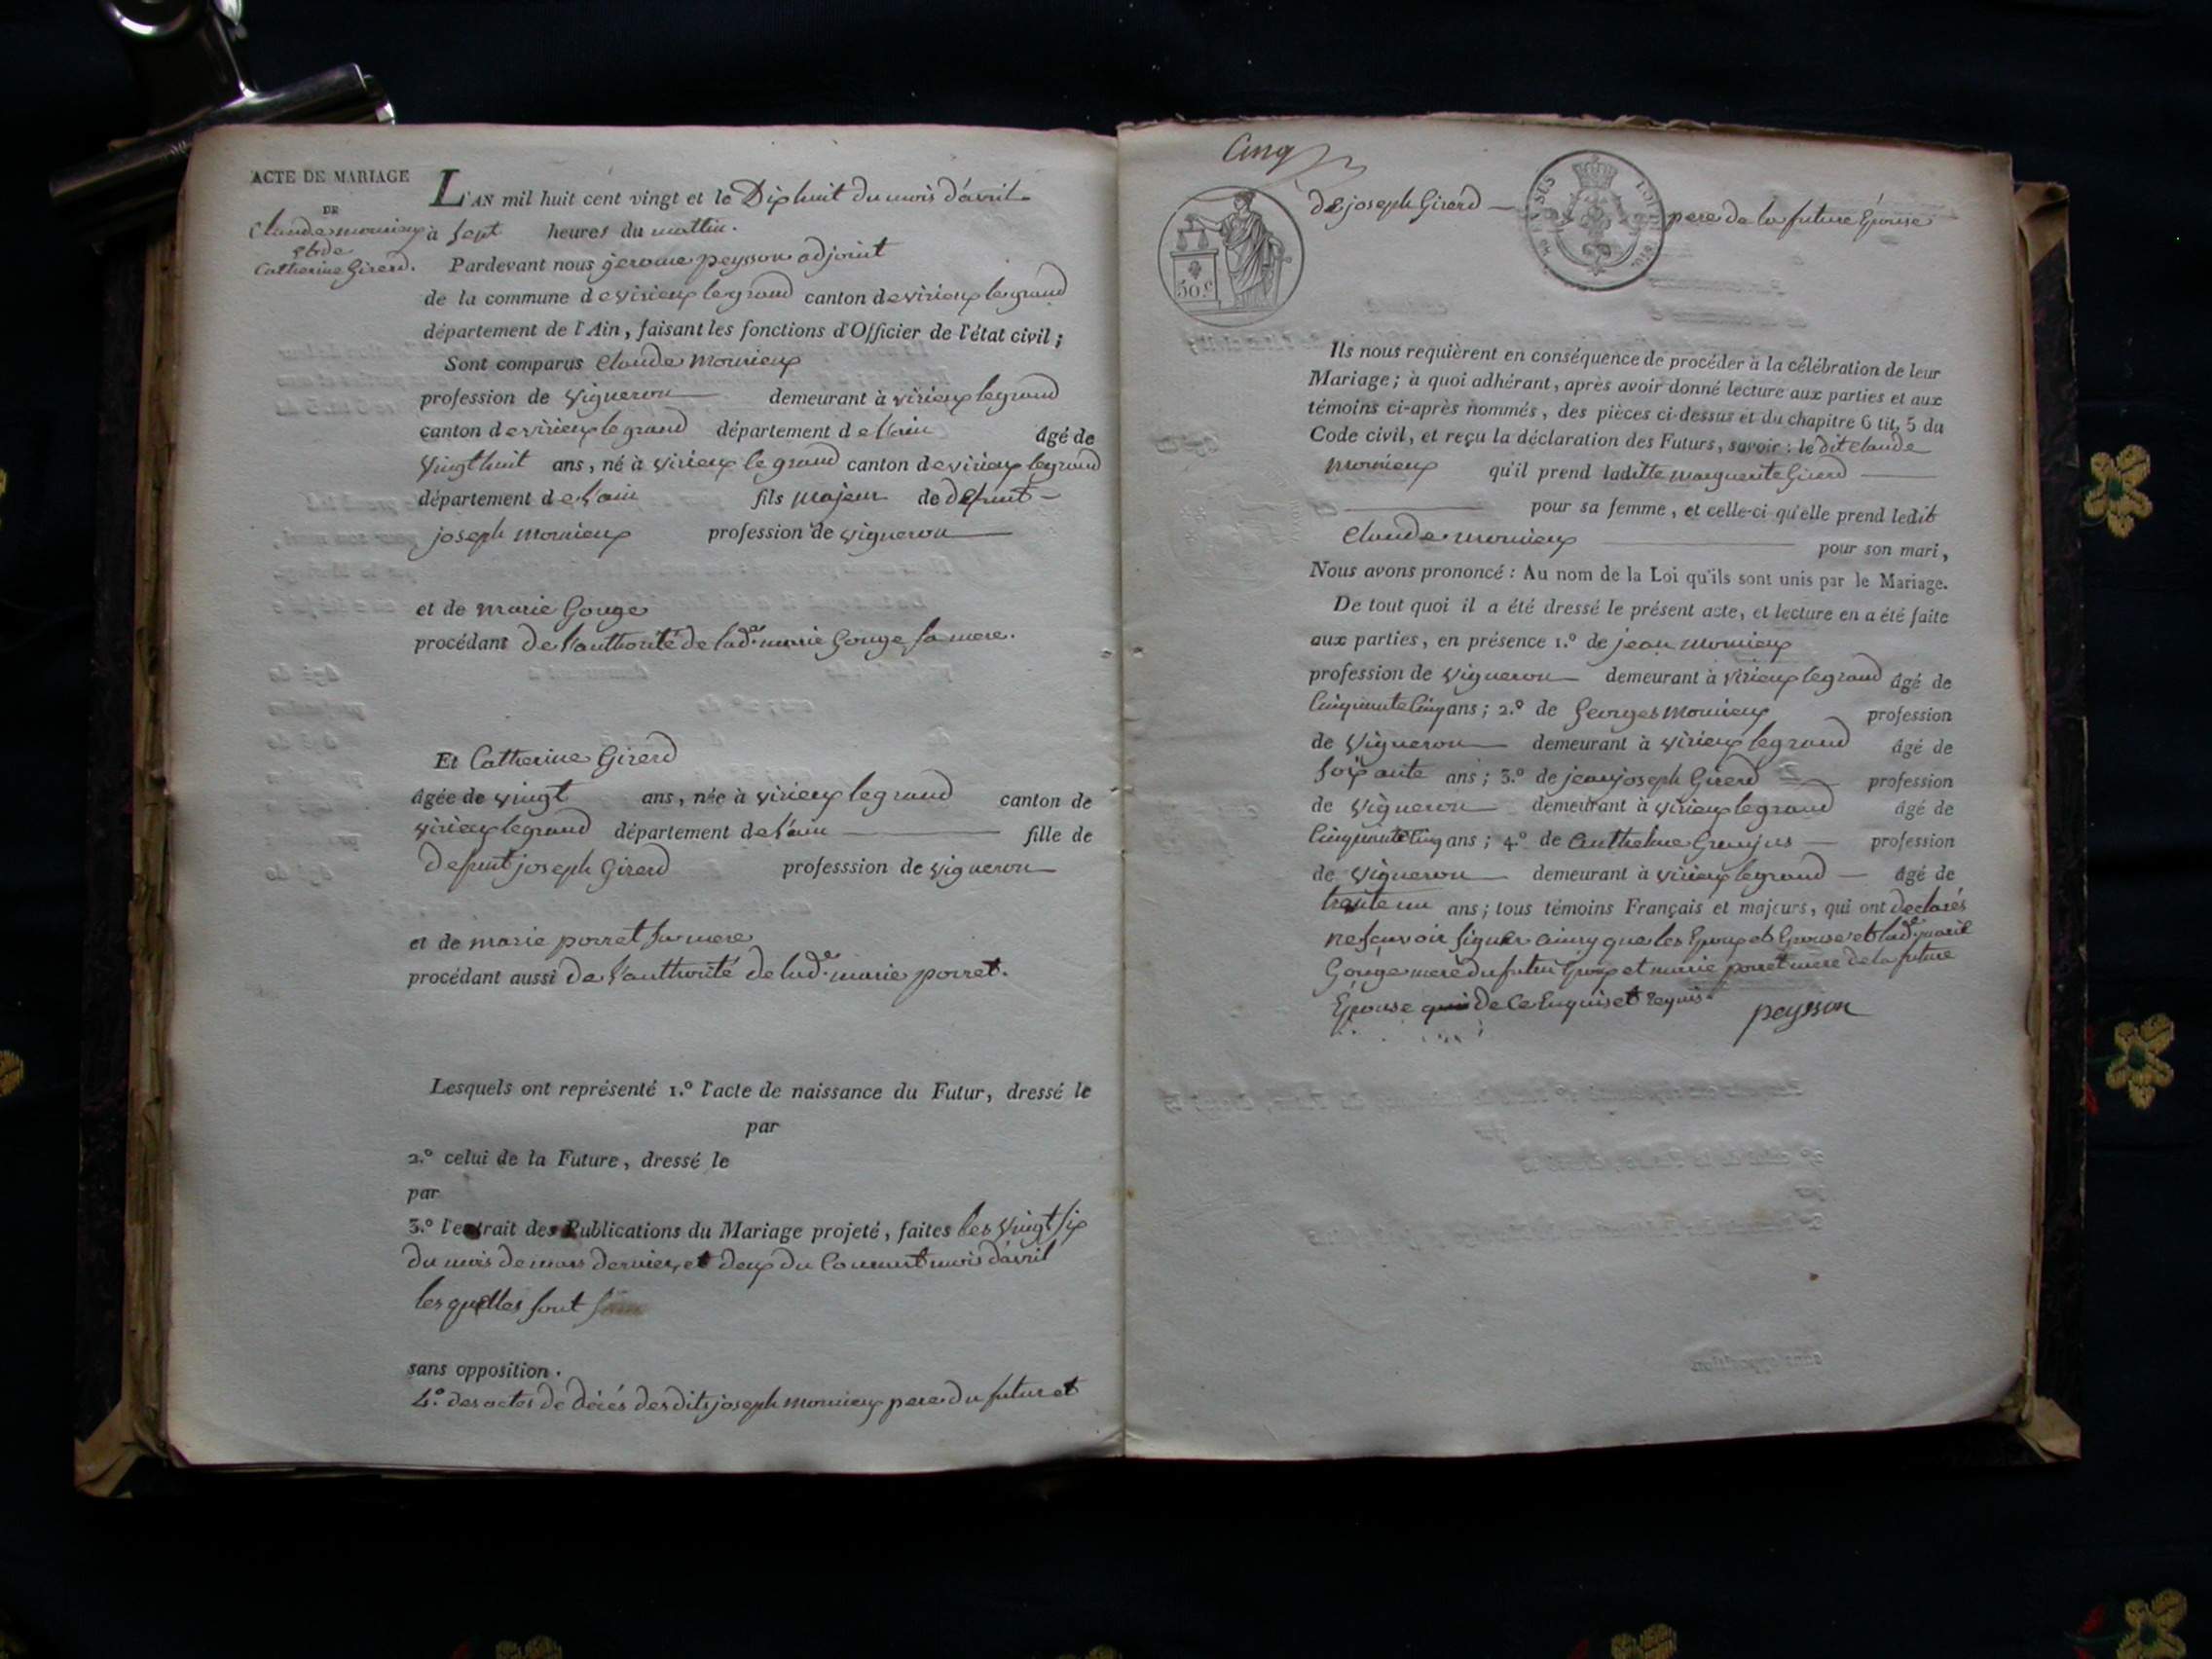 ACTE DE MARIAGE
DE
Claude monnieux
et de
Catherine Girerd.
L'AN mil huit cent vingt et le Dix huit du mois d'avril
à sept heures du mattin.
Pardevant nous gerome peysson adjoint
de la commune de virieux le grand canton de virieux le grand
département de l'Ain, faisant les fonctions d'Officier de l'état civil;
Sont comparus Claude Monnieux
profession de vigneron demeurant à virieux le grand
canton de virieux le grand département de l'ain âgé de
vingt huit ans, né à virieux le grand canton de virieux le grand
département de l'ain fils majeur de defunt
joseph monnieux profession de vigneron
et de marie Gouge
procédant de l'authorité de lad.e marie Gouge sa mere.
Et Catherine Girerd
âgée de vingt ans, née à virieux le grand canton de
virieux le grand département de l'ain fille de
defunt joseph Girerd professsion de vigneron
et de marie porret sa mere
procédant aussi de l'authorité de lad.e marie porret.
Lesquels ont représenté 1.º l'acte de naissance du Futur, dressé le
par
2.º celui de la Future, dressé le
par
3.º l'extrait des Publications du Mariage projeté, faites les vingt six
du mois de mars dernier, et deux du Courant mois d'avril
les quelles sont
sans opposition.
4.º des actes de décés desdits joseph monnieux pere du futur et
Cinq
de joseph Girerd pere de la future Epouse
50 c
Ils nous requièrent en conséquence de procéder à la célébration de leur
Mariage; à quoi adhérant, après avoir donné lecture aux parties et aux
témoins ci-après nommés, des pièces ci-dessus et du chapitre 6 tit. 5 du
Code civil, et reçu la déclaration des Futurs, savoir: le dit Claude
monnieux qu'il prend laditte marguerite Girerd
pour sa femme, et celle-ci qu'elle prend ledit
Claude monnieux pour son mari,
Nous avons prononcé: Au nom de la Loi qu'ils sont unis par le Mariage.
De tout quoi il a été dressé le présent acte, et lecture en a été faite
aux parties, en présence 1.º de jean monnieux
profession de vigneron demeurant à virieux le grand âgé de
Cinquante Cinq ans; 2.º de Georges Monnieux profession
de vigneron demeurant à virieux le grand âgé de
soixante ans; 3.º de jean joseph Girerd profession
de vigneron demeurant à virieux le grand âgé de
Cinquante Cinq ans; 4.º de Anthelme profession
de vigneron demeurant à virieux le grand âgé de
trente un ans; tous témoins Français et majeurs, qui ont declarés
ne sçavoir signer ainsy que les Epoux et Epouse et lad.e marie
Gouge mere du futur Epoux et marie porret mere de la future
Epouse de Ce Enquis et requis.
peysson